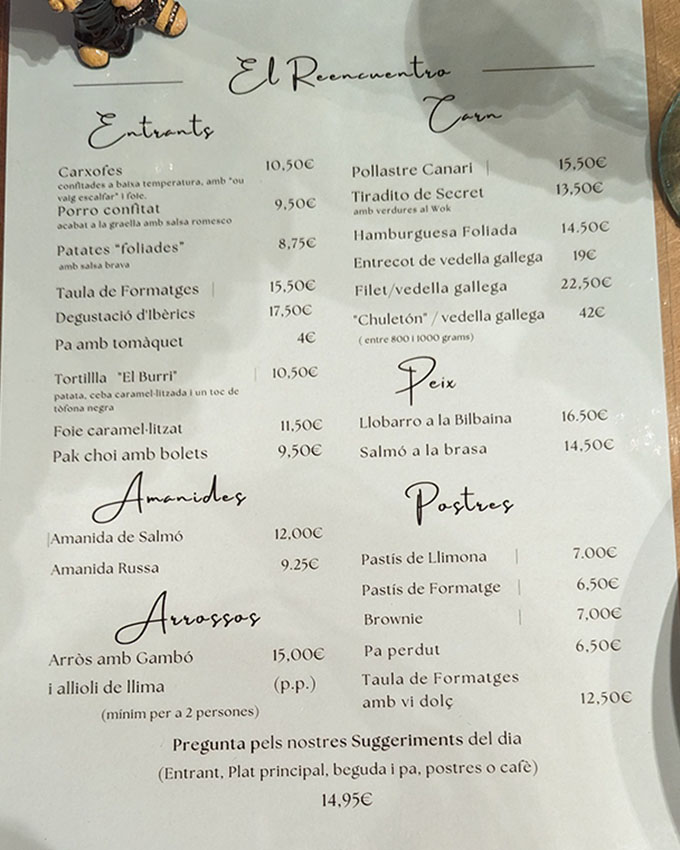 El Reencuentro
Entrants
Carxofes 10,50€
confitades a baixa temperatura, amb "ou
vaig escalfar" i foie.
Porro confitat 9,50€
acabat a la graella amb salsa romesco
Patates "foliades" 8,75€
amb salsa brava
Taula de Formatges 15,50€
Degustació d'Ibèrics 17,50€
Pa amb tomàquet 4€
Tortillla "El Burri" 10,50€
patata, ceba caramel·litzada i un toc de
tòfona negra
Foie caramel·litzat 11,50€
Pak choi amb bolets 9,50€
Amanides
Amanida de Salmó 12,00€
Amanida Russa 9.25€
Arrossos
Arròs amb Gambó 15,00€
i allioli de llima (p.p.)
(mínim per a 2 persones)
Carn
Pollastre Canari 15,50€
Tiradito de Secret 13,50€
amb verdures al Wok
Hamburguesa Foliada 14.50€
Entrecot de vedella gallega 19€
Filet/vedella gallega 22,50€
"Chuletón" / vedella gallega 42€
( entre 800 i 1000 grams)
Peix
Llobarro a la Bilbaina 16.50€
Salmó a la brasa 14,50€
Postres
Pastís de Llimona 7.00€
Pastís de Formatge 6,50€
Brownie 7,00€
Pa perdut 6,50€
Taula de Formatges
amb vi dolç 12,50€
Pregunta pels nostres Suggeriments del dia
(Entrant, Plat principal, beguda i pa, postres o cafè)
14,95€